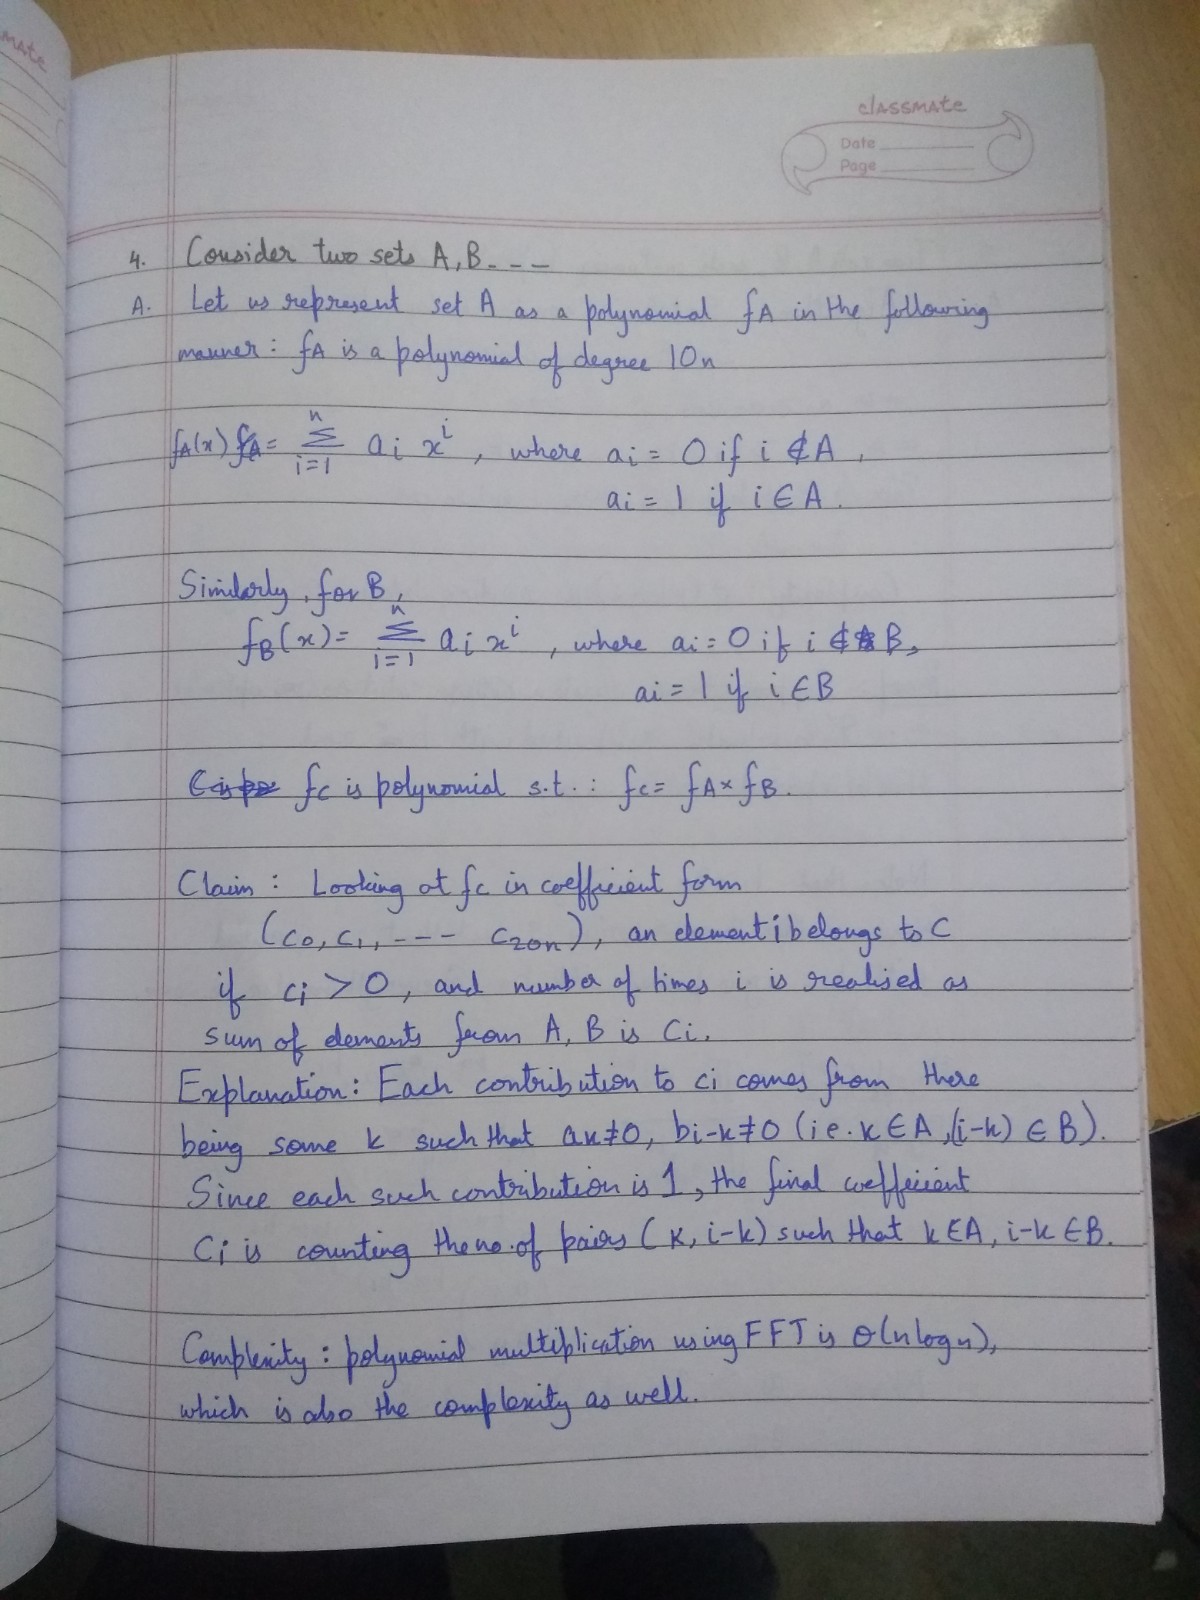 mate
classmate
Date
Page
4. Consider two sets A, B - - -
A. Let us represent set A as a polynomial fA in the following
manner : fA is a polynomial of degree 10n
fA(x) = n Σ i=1 ai x^i , where ai = 0 if i ∉ A ,
ai = 1 if i ∈ A .
Similarly, for B,
fB(x) = n Σ i=1 ai x^i , where ai = 0 if i ∉ B,
ai = 1 if i ∈ B
fc is polynomial s.t. : fc = fA × fB .
Claim : Looking at fc in coefficient form
(c0, c1, - - - c20n), an element i belongs to C
if ci > 0, and number of times i is realised as
sum of elements from A, B is Ci.
Explanation : Each contribution to ci comes from there
being some k such that ak ≠ 0, bi-k ≠ 0 (ie. k ∈ A, (i-k) ∈ B).
Since each such contribution is 1, the final coefficient
Ci is counting the no. of pairs (k, i-k) such that k ∈ A, i-k ∈ B.
Complexity : polynomial multiplication using FFT is θ(n log n),
which is also the complexity as well.